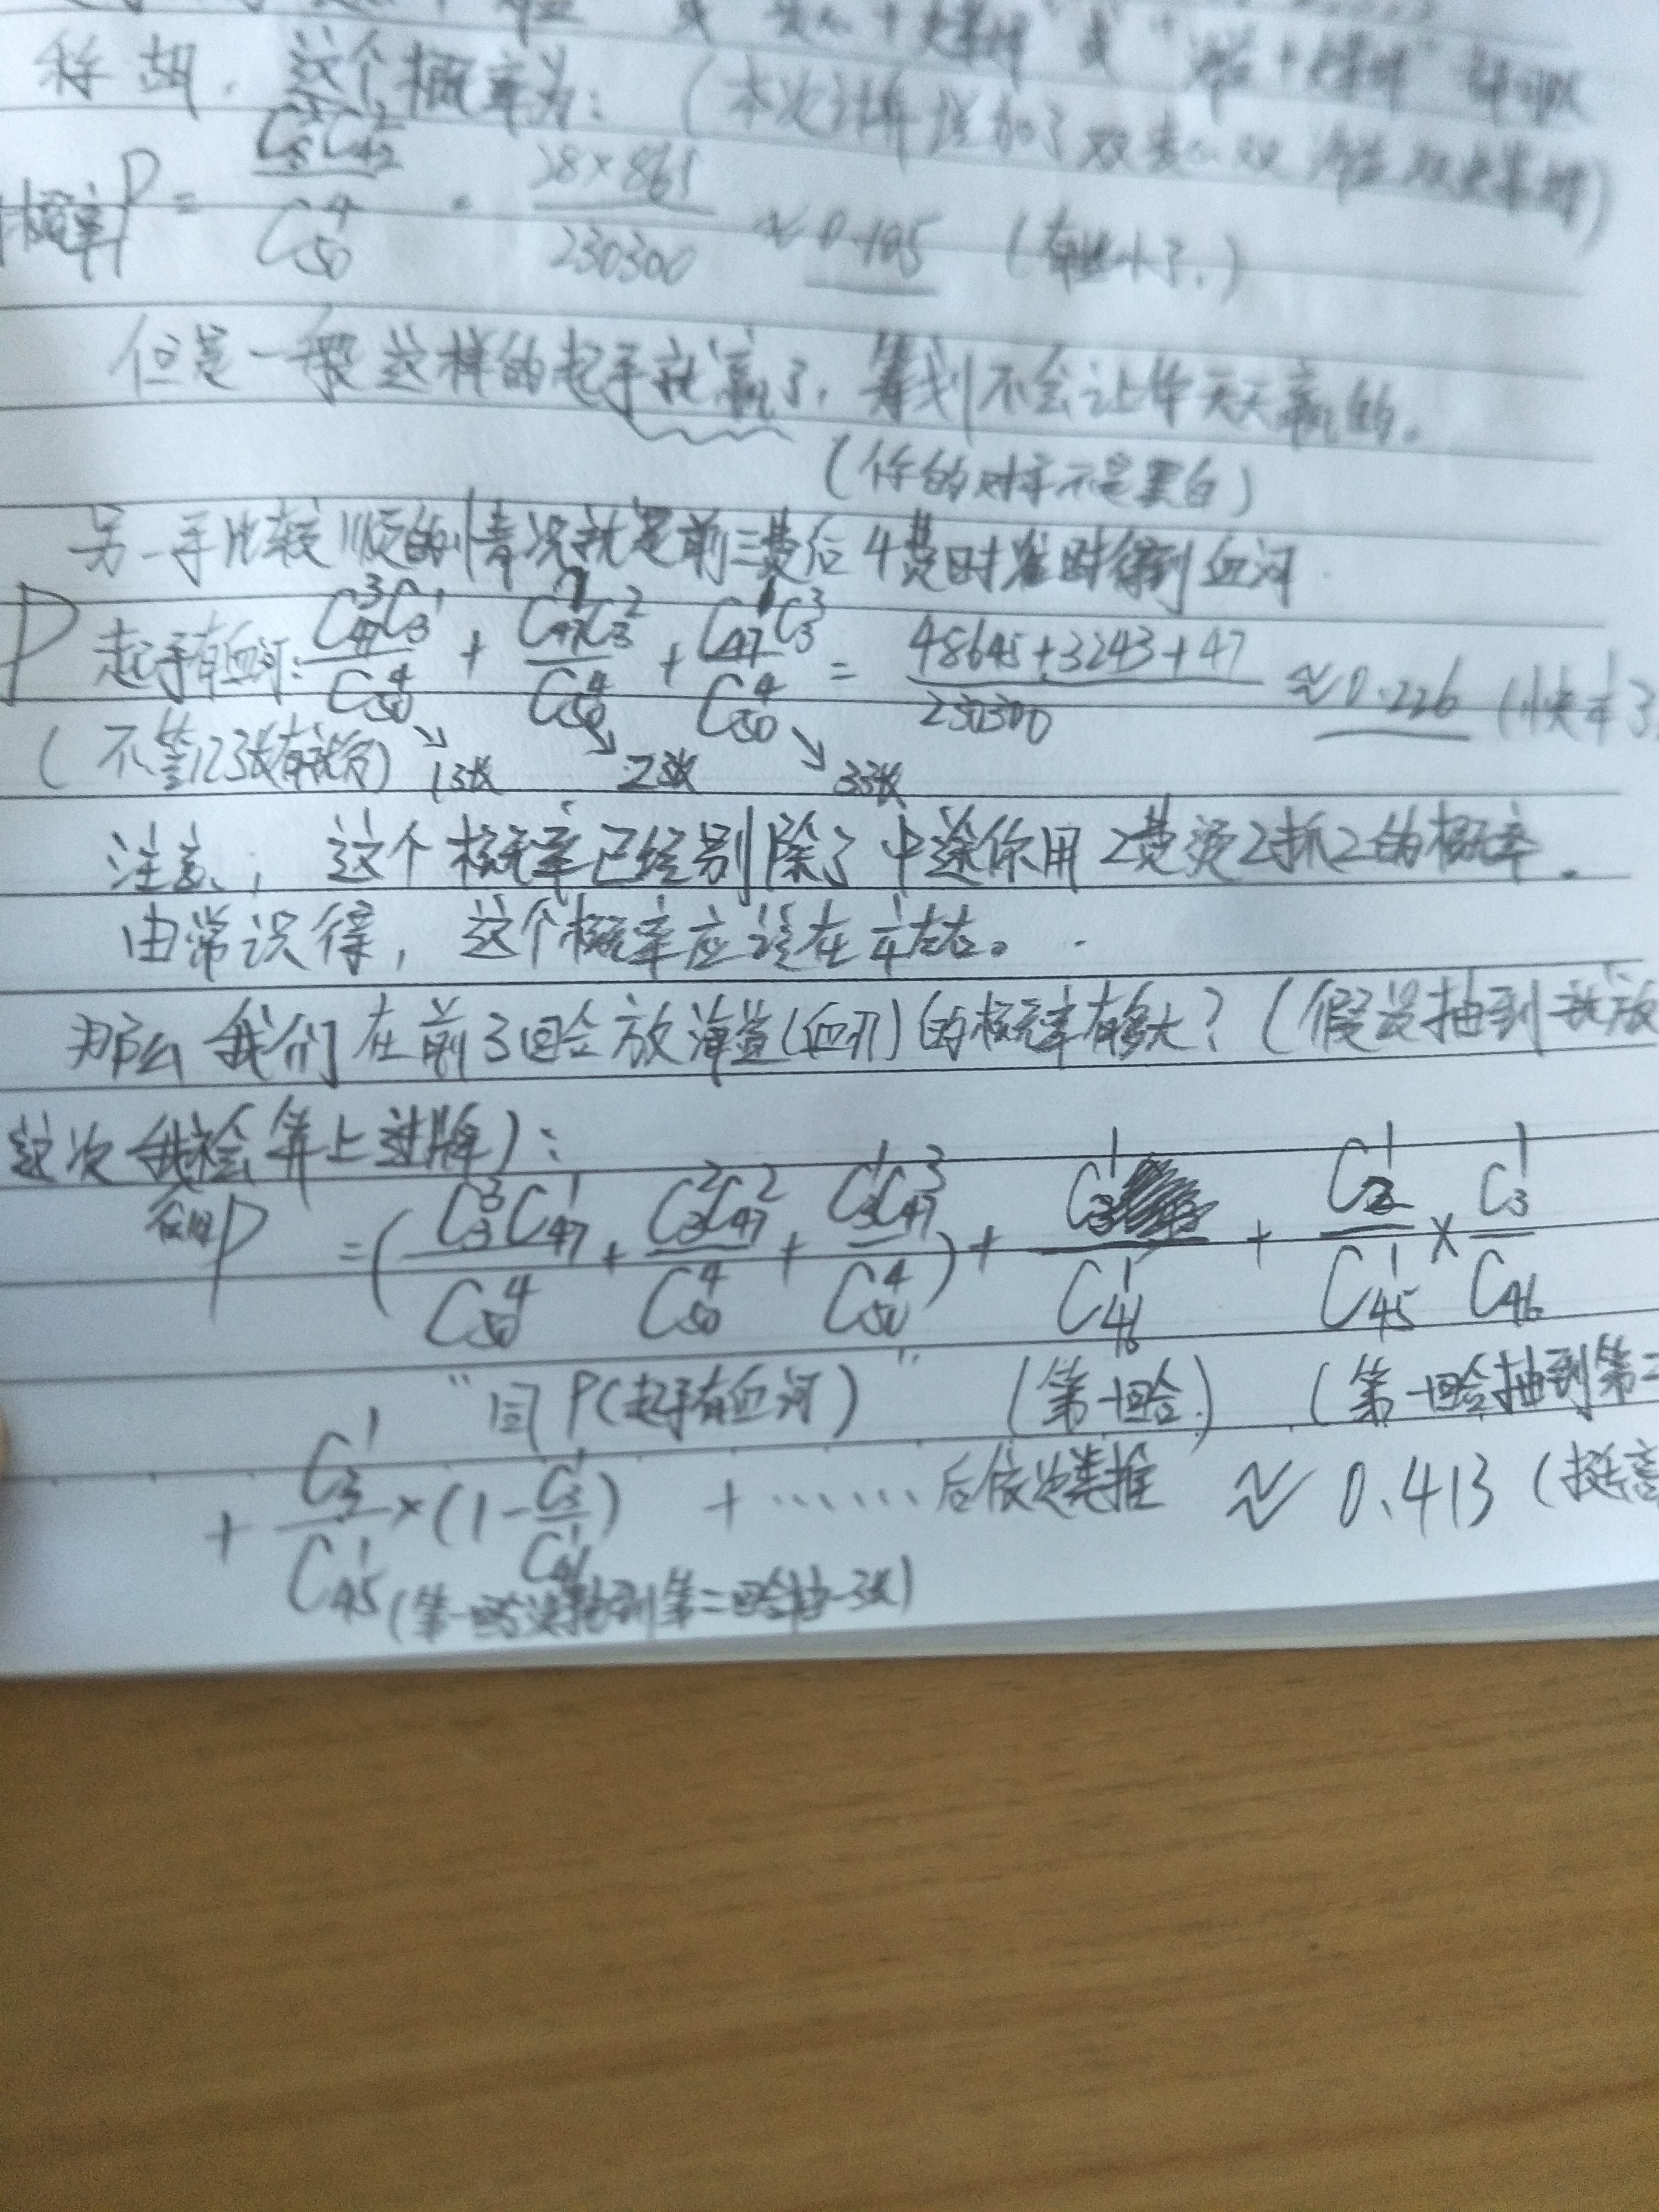 称胡，这个概率为：（本次计算增加了双
概率P = C₈²C₄₂² / C₅₀⁴ · 28×861 / 230300 ≈ 0.105 （有些小了.）
但是一般这样的起手就赢了，筹划不会让你天天赢的。
（你的对手不是黑白）
另一手比较顺的情况就是前三费后4费时准时得到血河.
P 起手有血河: C₄₇³C₃¹ / C₅₀⁴ + C₄₇²C₃² / C₅₀⁴ + C₄₇¹C₃³ / C₅₀⁴ = 48645+3243+47 / 230300 ≈ 0.226
（不管123张有就行） ↘1张 ↘2张 ↘3张
注意，这个概率已经剔除了中途你用2费烫2抓2的概率。
由常识得，这个概率应该在1/4左右。
那么我们在前3回合放海盗(血河)的概率有多大？（假设抽到就放
这次我会算上过牌）：
P =( C₃³C₄₇¹ / C₅₀⁴ + C₃²C₄₇² / C₅₀⁴ + C₃¹C₄₇³ / C₅₀⁴ ) + C₃¹ / C₄₆¹ + C₂¹ / C₄₅¹ × C₃¹ / C₄₆
"同P(起手有血河)" （第一回合） （第一回合抽到第二
+ C₃¹ / C₄₅¹ ×(1- C₃¹ / C₄₆¹) + ……后依次类推 ≈ 0.413
（第一回合没抽到第二回合抽一张）